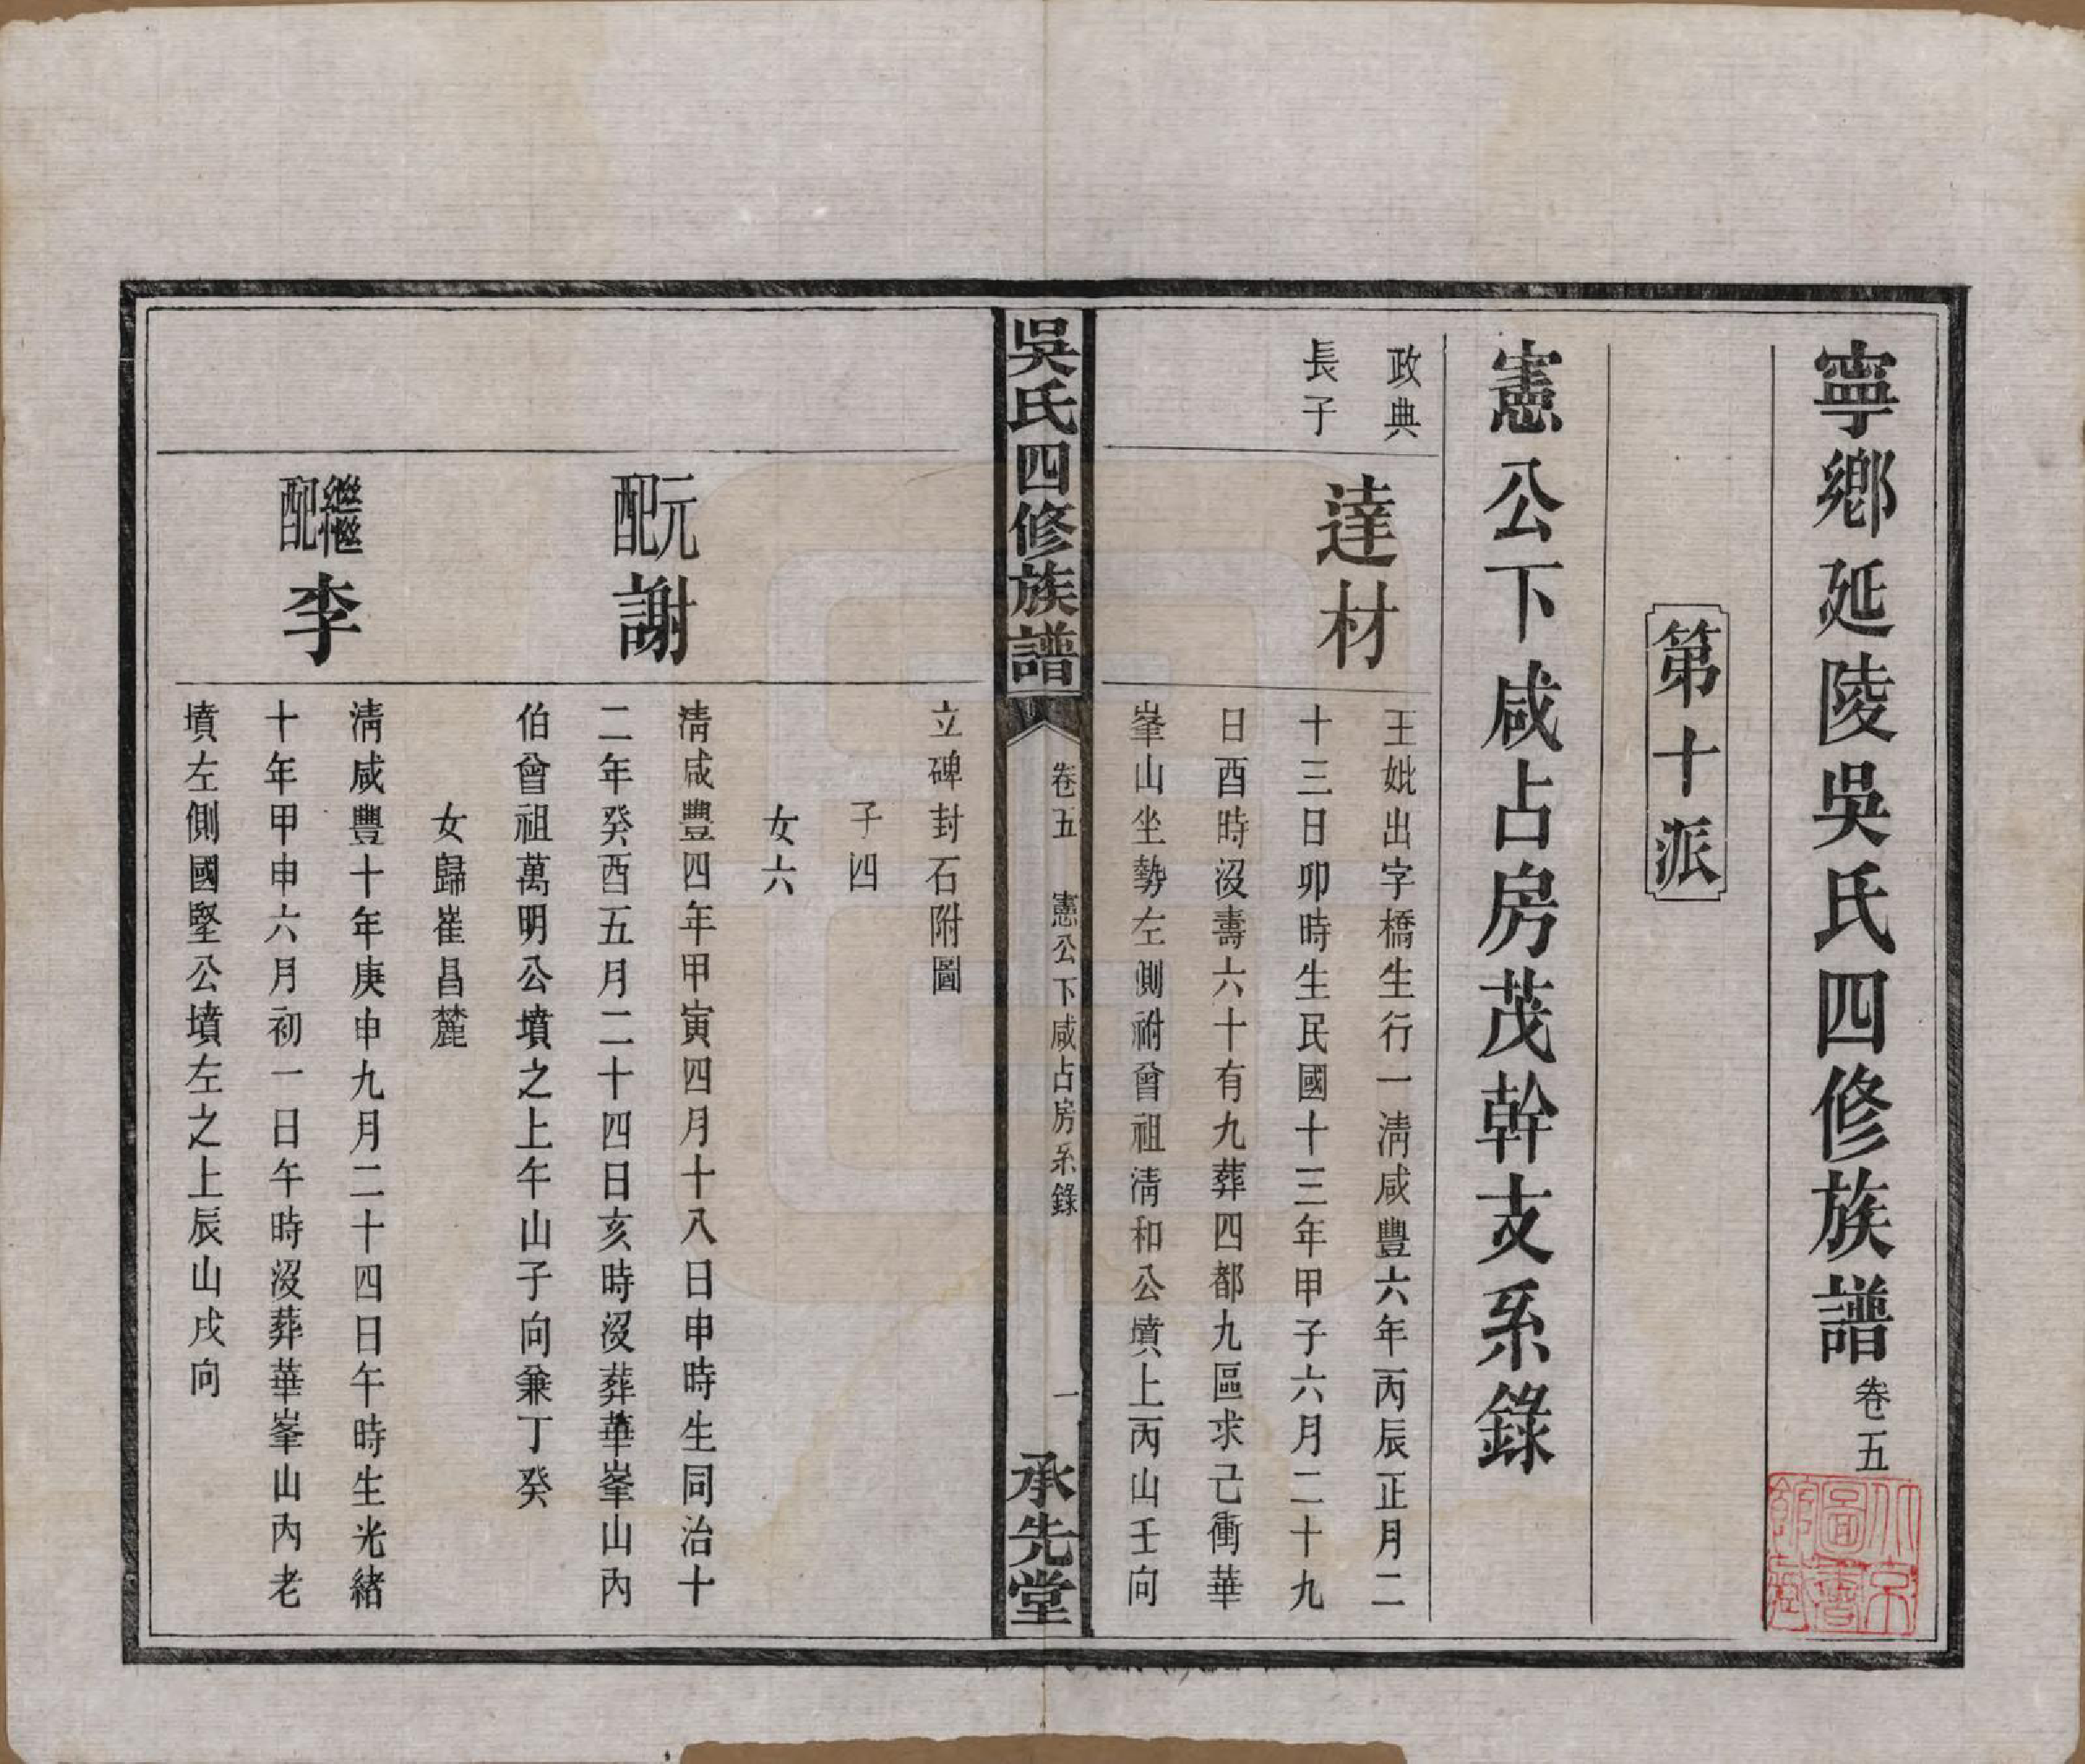 寧鄉延陵吳氏四修族譜卷五
第十派
憲公下咸占房茂幹支系錄
政典
長子
達材
王妣出字橋生行一淸咸豐六年丙辰正月二
十三日卯時生民國十三年甲子六月二十九
日酉時沒壽六十有九葬四都九區求己衝華
峯山坐勢左側祔曾祖淸和公墳上丙山壬向
吳氏四修族譜
卷五
憲公下咸占房系錄
一
承先堂
立碑封石附圖
子四
女六
元配謝
淸咸豐四年甲寅四月十八日申時生同治十
二年癸酉五月二十四日亥時沒葬華峯山內
伯曾祖萬明公墳之上午山子向兼丁癸
女歸崔昌麓
繼配李
淸咸豐十年庚申九月二十四日午時生光緒
十年甲申六月初一日午時沒葬華峯山內老
墳左側國堅公墳左之上辰山戌向
北京
圖書
館藏